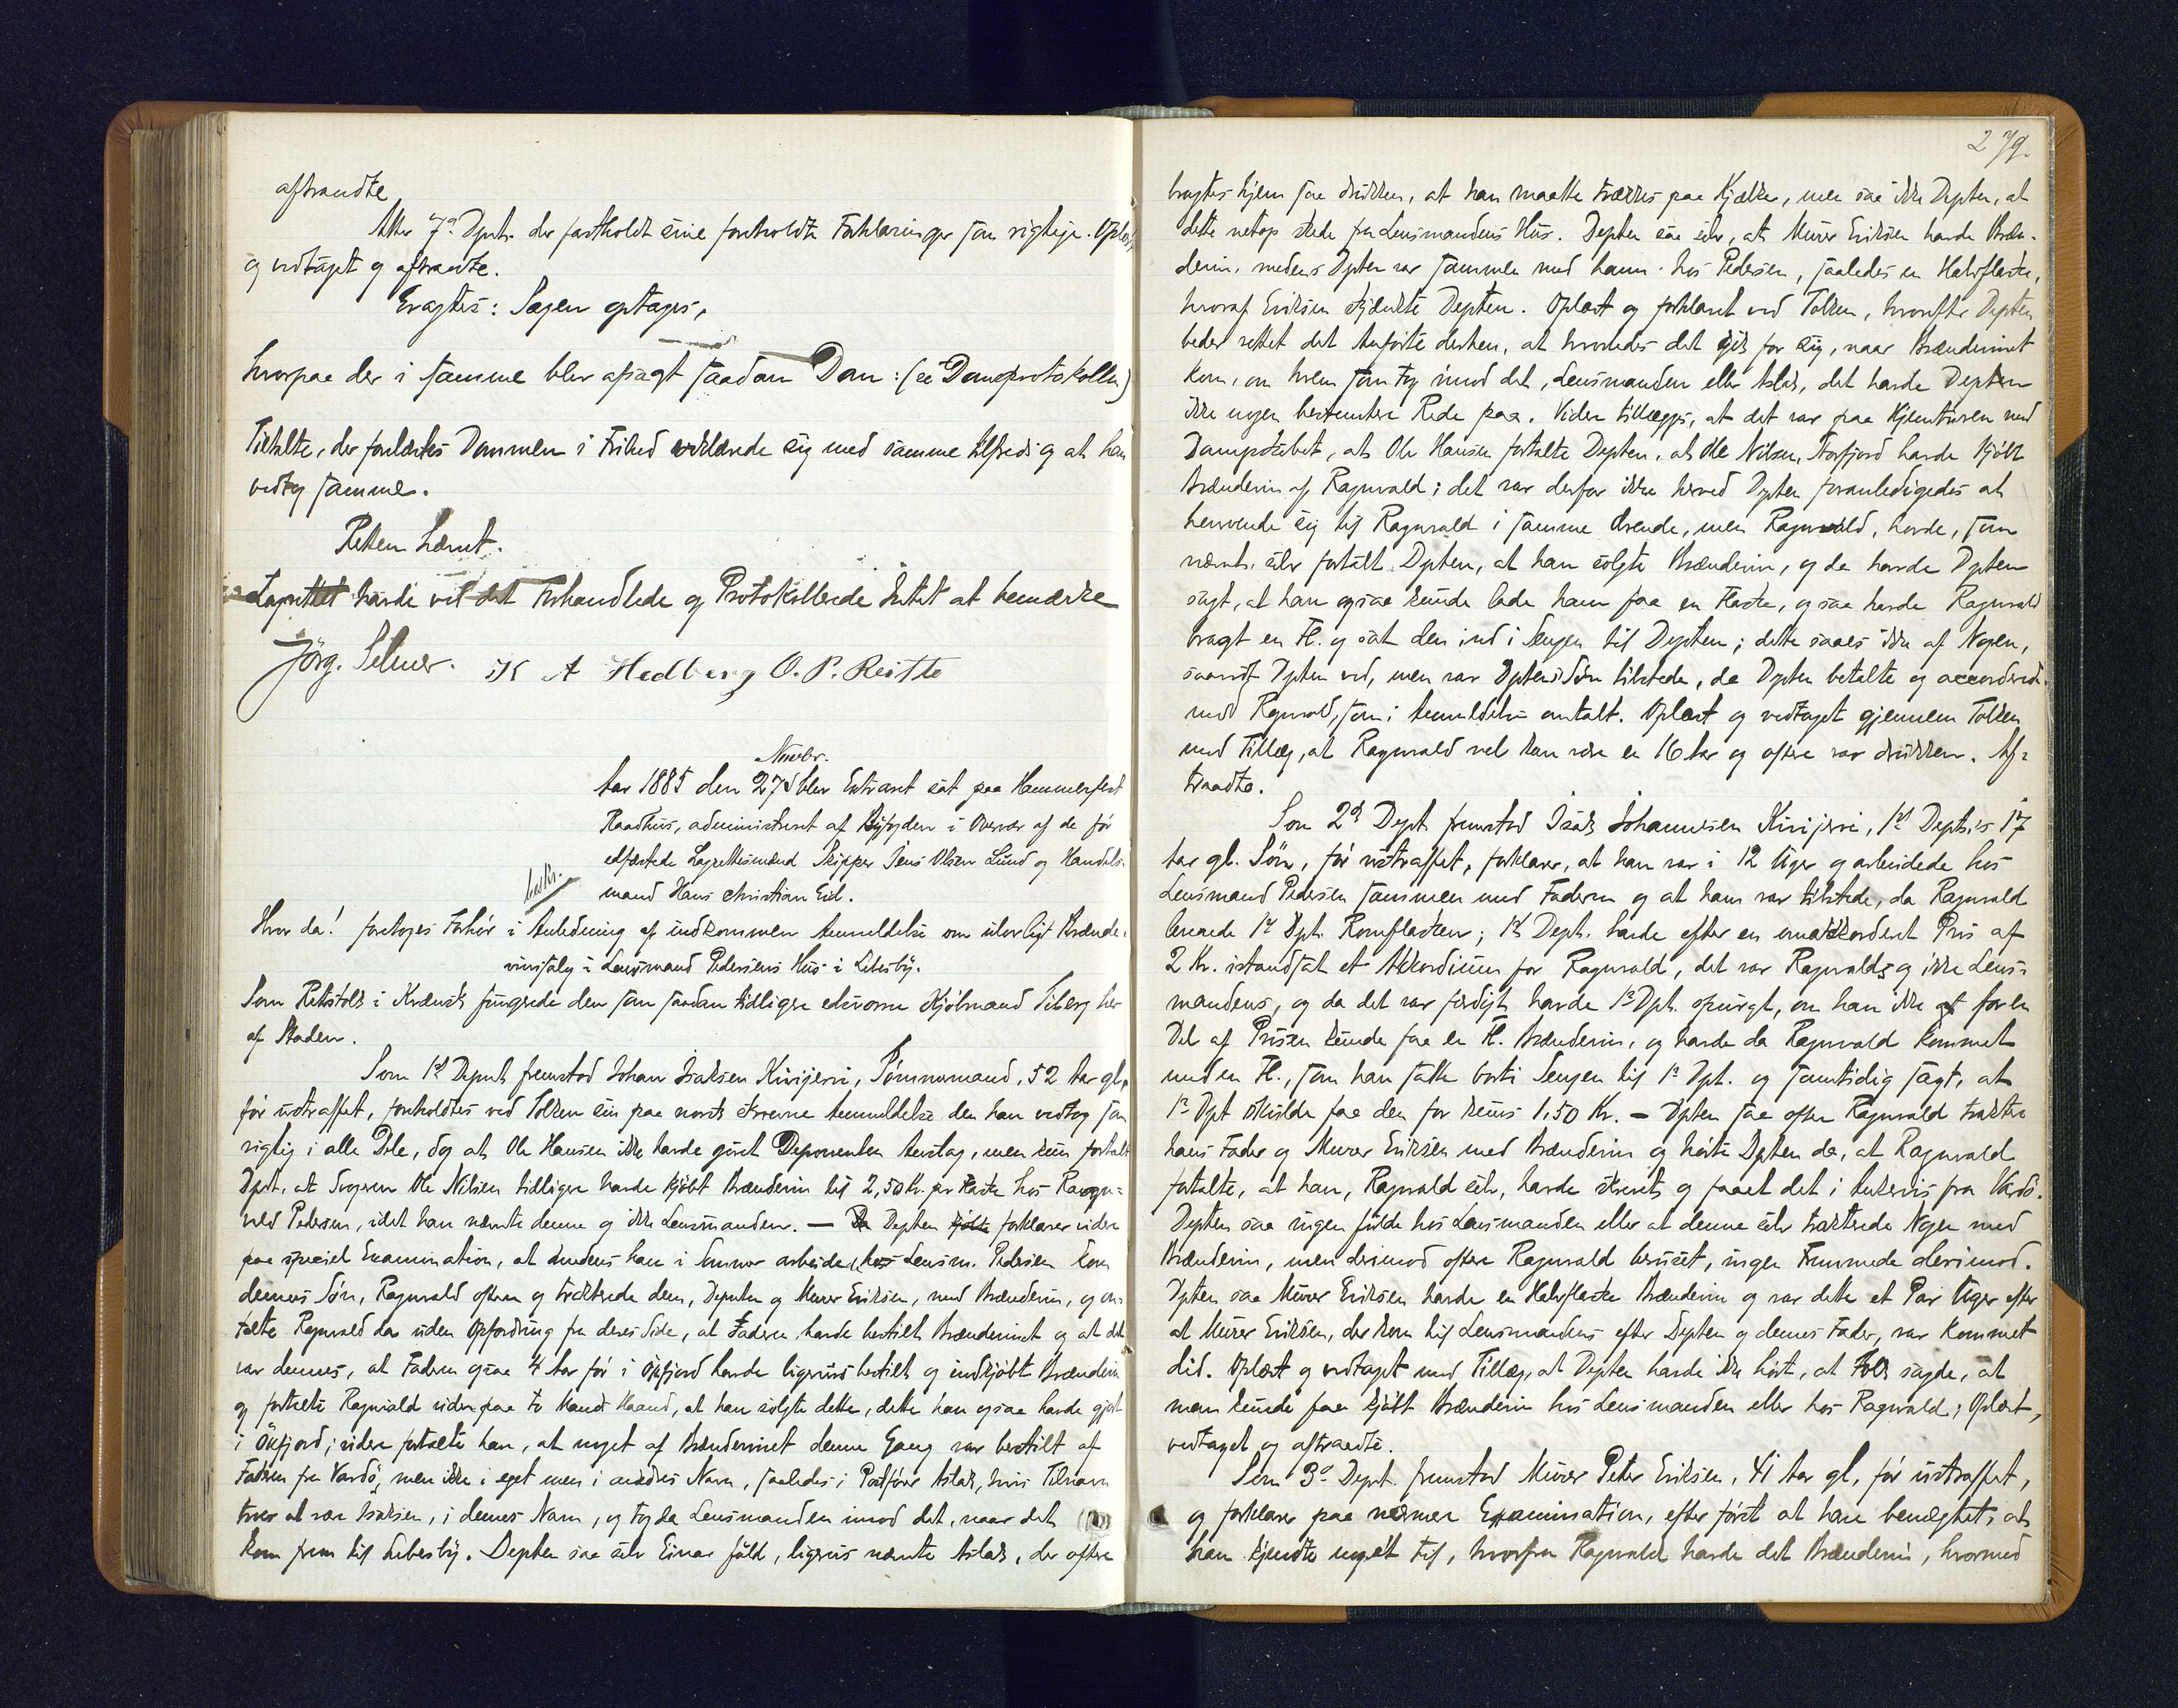 aftraadte
Atter 7de Dpnt. der fastholdt sine foreholdte Forklaringer som rigtige. Oplæst
og vedtaget og aftraadte.
Eragtes: Sagen optages,
hvorpaa der i samme blev afsagt saadan Dom: (se Domsprotokollen)
Tiltalte, der forelæstes Dommen i Frihed erklærede sig med samme tilfreds og at han
vedtog samme.
Retten hævet.
Lagrettet havde ved det Forhandlede og Protokollerede Intet at bemærke
Jörg. Selmer. K A Hedberg O. P. Reitto
Novbr.
Aar 1885 den 27d blev Extraret sat paa Hammerfest
Raadhus, administreret af Byfogden i Overvær af de før
edfæstede Lagrettesmænd Skipper Jens Olsen Lund og Handels-
mand Hans Christian Eid.
beskr.
Hvor da! foretoges Forhør i Anledning af indkommen Anmeldelse om ulovligt Brænde-
vinssalg i Lensmand Pedersens Hus i Lebesby.
Som Retstolk i Kvænsk fungerede den som saadan tidligere edsvorne Kjøbmand Siberg her
af Staden.
Som 1st Deponent fremstod Johan Isaksen Kivijervi, Tømmermand, 52 Aar gl.,
før ustraffet, foreholdtes ved Tolken sin paa norsk skrevne Anmeldelse den han vedtog som
rigtig i alle Dele, dog at Ole Hansen ikke havde givet Deponenten Anslag, men kun fortalt
Dpnt. at Svogeren Ole Nilsen tidligere havde kjøbt Brændevin til 2,50 Kr. pr Flaske hos Ragn-
vald Pedersen, idet han nævnte denne og ikke Lensmanden. — Da Depten kjøbte forklarer videre
paa speciel Examination, at medens han i Sommer arbeidede hos Lensm. Pedersen kom
dennes Søn, Ragnvald oftere og trakterede dem, Deponten og Murer Eriksen, med Brændevin, og om-
talte Ragnvald da uden Opfordring fra deres Side, at Faderen havde bestilt Brændevinet og at det
var dennes, at Faderen ogsaa 4 Aar før i Öxfjord havde ligeens bestilt og indkjøbt Brændevin
og fortalte Ragnvald videre paa to Mands Haand, at han solgte dette, dette han ogsaa havde gjort
i Öxfjord; videre fortalte han, at noget af Brændevinet denne Gang var bestilt af
Faderen fra Vardö, men ikke i eget men i andres Navn, saaledes i Postfører Aslak, hvis Tilnavn
troes at være Isaksen, i dennes Navn, og tog da Lensmanden imod det, naar det
kom frem til Lebesby. Depten saa selv Einar fuld, ligesaa nævnte Aslak, der oftere
279.
bragtes hjem saa drukken, at han maatte trækkes paa Kjælke, men saa ikke Depten, at
dette netop skede fra Lensmandens Hus. Depten saa selv, at Murer Eriksen havde Bræn-
devin, medens Dpten var sammen med ham hos Pedersen, saaledes en Halvflaske,
hvoraf Eriksen skjænkte Depten. Oplæst og forklaret ved Tolken, hvorefter Depten
beder rettet det Anførte derhen, at hvorledes det gik for sig, naar Brændevinet
kom, om hvem som tog imod det, Lensmanden eller Aslak, det havde Depten
ikke nogen bestemtere Rede paa. Videre tillægges, at det var paa Hjemturen med
Dampskibet, at Ole Hansen fortalte Depten, at Ole Nilsen, Storfjord havde kjøbt
Brændevin af Ragnvald; det var derfor ikke herved Dpten foranledigedes at
henvende sig til Ragnvald i samme Ærende, men Ragnvald, havde, som
nævnt, selv fortalt Dpten, at han solgte Brændevin, og da havde Dpten
sagt, at han ogsaa kunde lade ham faa en Flaske, ogsaa havde Ragnvald
bragt en Fl. og sat den ind i Sengen til Depten; dette saaes ikke af Nogen,
saavidt Dpten ved, men var Dptens Søn tilstede, da Dpten betalte og accorderede
med Ragnvald, som i Anmeldelsen omtalt. Oplæst og vedtaget gjennem Tolken
med Tillæg, at Ragnvald vel kan være en 16 Aar og oftere var drukken. Af-
traadte.
Som 2d Dept. fremstod Isak Johannesen Kivijervi, 1st Depts. 17
Aar gl. Søn, før ustraffet, forklarer, at han var i 12 Uger og arbeidede hos
Lensmand Pedersen sammen med Faderen og at han var tilstede, da Ragnvald
leverede 1st Dpt. Romflasken; 1st Dept. havde efter en omakkorderet Pris af
2 Kr. istandsat et Akkordium for Ragnvald, det var Ragnvalds og ikke Lens-
mandens, og da det var færdigt havde 1st Dpt. spurgt, om han ikke at for en
Del af Prisen kunde faa en Fl. Brændevin, og havde da Ragnvald kommet
med en Fl., som han satte borti Sengen til 1st Dpt. og samtidig sagt, at
1st Dpt skulde faa den for kuns 1,50 Kr. — Dpten saa ofte Ragnvald traktere
hans Fader og Murer Eriksen med Brændevin og hørte Dpten da, at Ragnvald
fortalte, at han, Ragnvald selv, havde skrevet og faaet det i Ankervis fra Vardö.
Depten saa ingen fulde hos Lensmanden eller at denne selv trakterede Nogen med
Brændevin, men derimod oftere Ragnvald beruset, ingen Fremmede derimod.
Dpten saa Murer Eriksen havde en Halvflaske Brændevin og var dette et Par Uger efter
at Murer Eriksen, der kom til Lensmandens efter Depten og dennes Fader, var kommet
did. Oplæst og vedtaget med Tillæg, at Depten havde ikke hørt, at Folk sagde, at
man kunde faa kjøbt Brændevin hos Lensmanden eller hos Ragnvald; Oplæst,
vedtaget og aftraadte.
Som 3d Dept. fremstod Murer Peter Eriksen, 41 Aar gl., før ustraffet,
og forklarer paa nærmere Examination, efter først at have benægtet, at
han kjendte noget til, hvorfra Ragnvald havde det Brændevin, hvormed